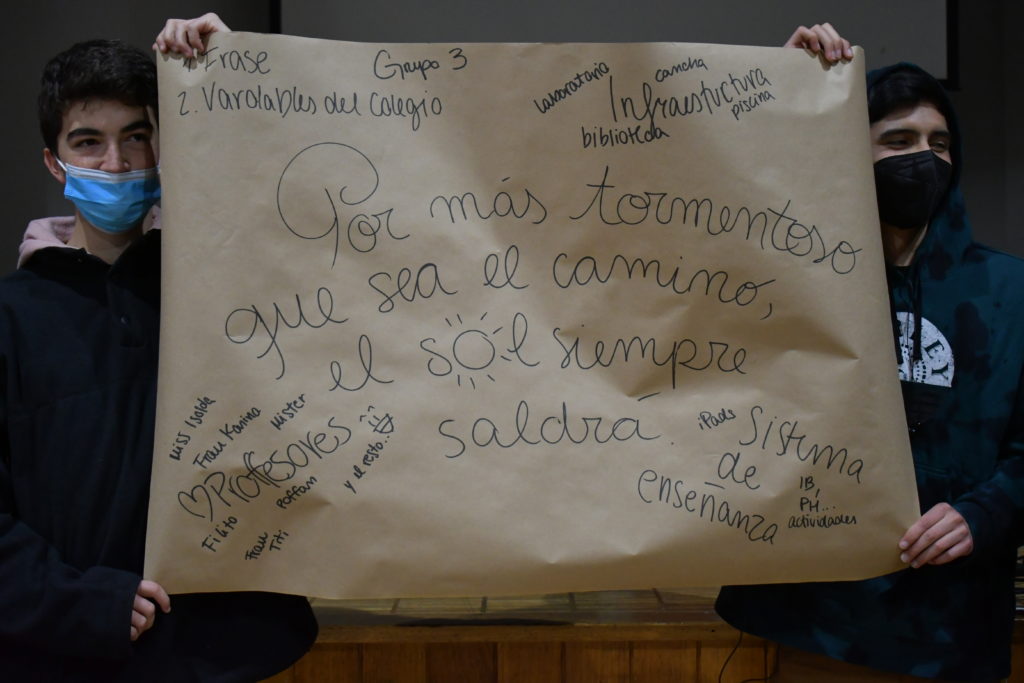 1. Frase
Grupo 3
2. Varolables del Colegio
laboratorio
cancha
Infraestuctura
piscina
biblioteda
Por más tormentoso
que sea el camino,
el sol siempre
saldrá.
Miss Isolda
Frau Karina
Mister
Proffesores
y el resto...
Poffam
Filito
Frau
Titi
iPads
Sistema
de
enseñanza
IB,
PH...
actividades